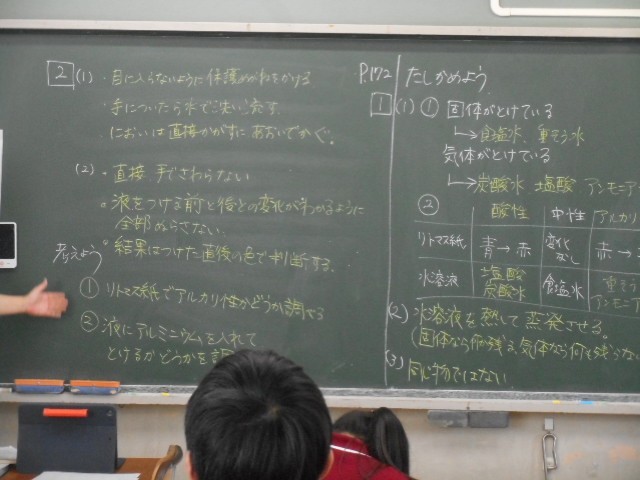 2 (1)・目に入らないように保護めがねをかける
・手についたら水で洗い流す
・においは直接かがずにあおいでかぐ。
(2)・直接手でさわらない
。液をつける前と後との変化がわかるように
全部ぬらさない
。結果はつけた直後の色で判断する。
考えよう
① リトマス紙でアルカリ性かどうか調べる
② 液にアルミニウムを入れて
とけるかどうかを調
P.172 たしかめよう
1 (1) ① 固体がとけている
→食塩水、重そう水
気体がとけている
→炭酸水 塩酸 アンモニア
② 酸性 中性 アルカリ
リトマス紙 青→赤 変化なし 赤→
水溶液 塩酸 炭酸水 食塩水 重そう アンモニア
(2) 水溶液を熱して蒸発させる。
(固体なら何か残る、気体なら何も残らない
(3) 同じ物ではない